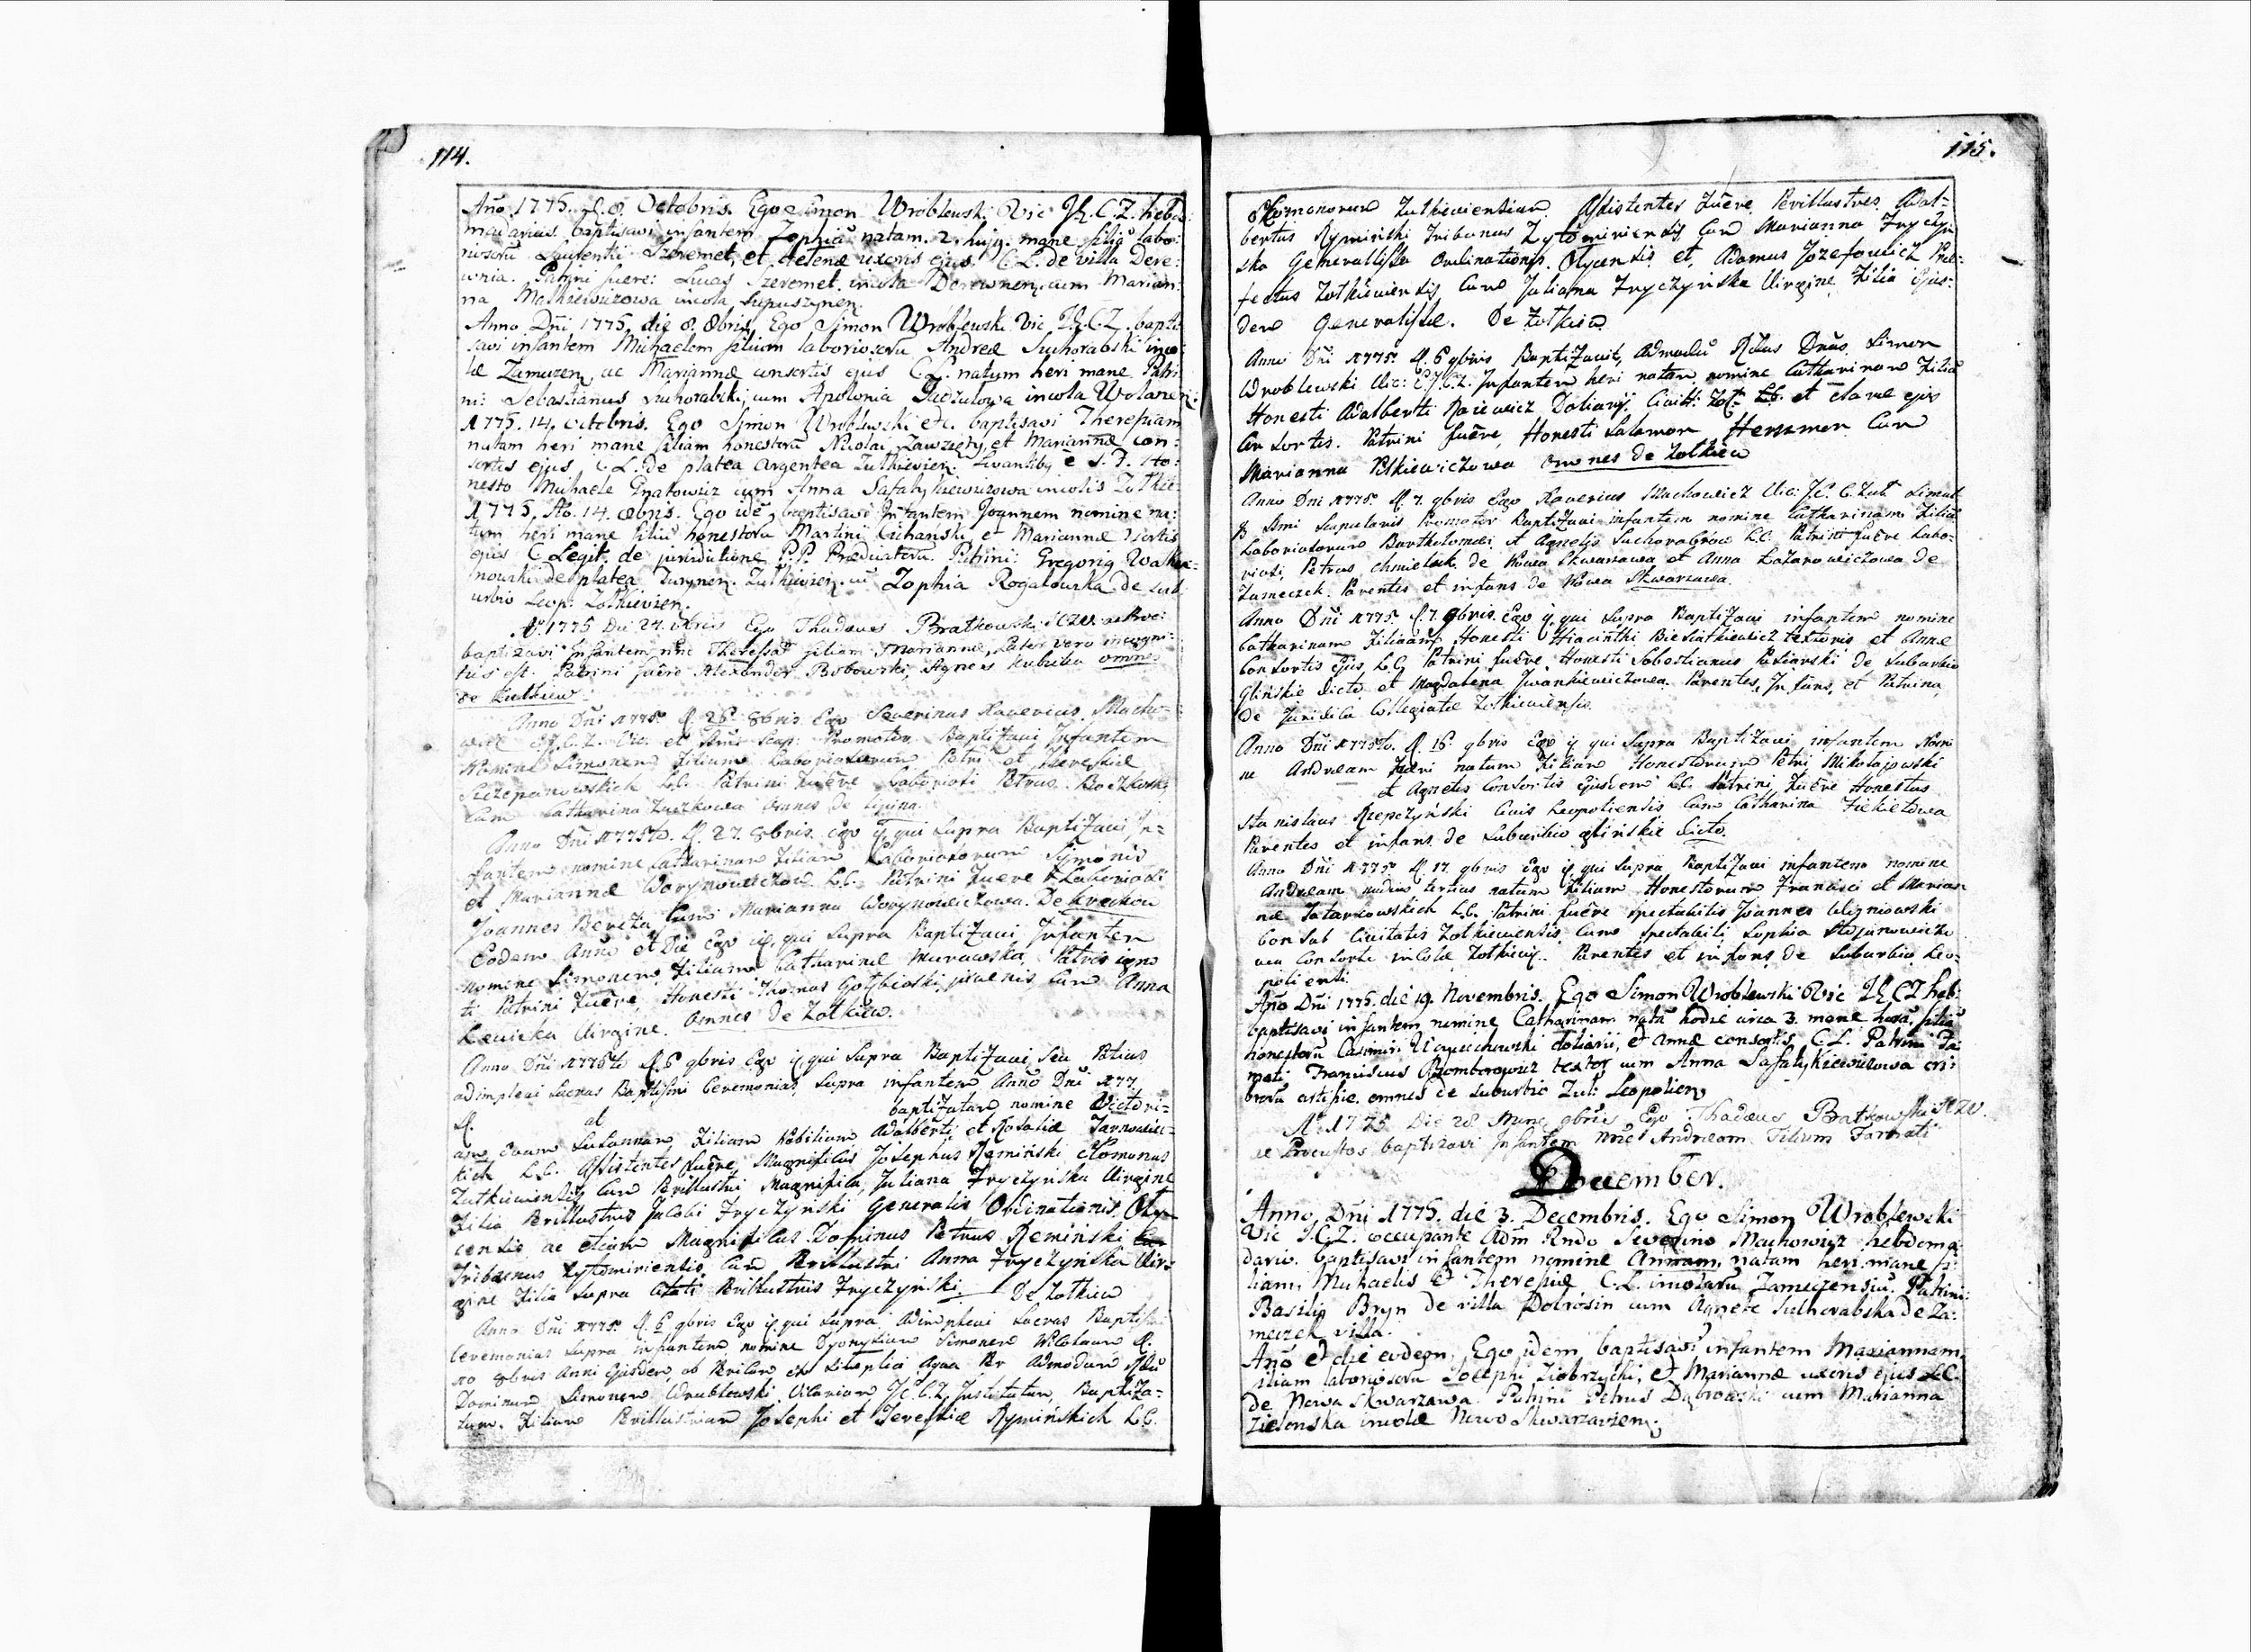 114.
Año 1775. d. 8. Octobris. Ego Simon Wroblewski Vic I. C. Z. hebdo:
madarius baptisavi infantem Zophiã natam. 2. huj9. mane filiã labo:
riosorũ Laurentii Szeremet, et Helenæ uxoris ejus C. L. de villa Dere:
wnia. Patrini fuere: Lucas Szeremet incola Derewnen. cum Marian:
na Mathiewiczowa incola Lupuszynen.
Anno Dñi 1775. die 8. 8bris Ego Simon Wroblewski Vic. I. C. Z. bapti
savi infantem Michaelem filium laboriosorũ Andreæ Suchorabski inco:
læ Zameczen, ac Mariannæ consortis ejus C. L. natum heri mane. Patri
ni: Sebastianus Suchorabski, cum Apolonia Dudzulowa incola Wolanen:
1775. 14. Octobris. Ego Simon Wroblewski etc. baptisavi Theresiam
natam heri mane filiam honestorũ Nicolai Zawzięty, et Mariannæ con:
sortis ejus C. L. de platea argentea Zulkievien. Levantib9 è S. F. Ho:
nesto Michaele Gnatowicz cum Anna Safatykiewiczowa incolis Zolkie:
1775. do. 14. 8bris. Ego idẽ, baptisavi Infantem Joannem nomine na:
tum heri mane filiũ honestorũ Martini Cichanski et Mariannæ Xsortis
ejus C. Legit. de juridictione P.P. Prædicatorũ. Patrini: Gregori9 Walku:
nowski de platea Turynen. Zulkievien. cũ Zophia Rogalowska de sub
urbio Leop: Zolkievien.
Aº. 1775 Die 24. 8bris Ego Thadæus Bratkowski ICZV. et Proc:
baptizavi Infantem nñe Theressã filiam Mariannæ, Pater vero incogni:
tus est. Patrini fuere Alexander Bobowski, Agnes Kubicka omnes
de Zulkiew.
Anno Dñi 1775º d. 26. 8bris Ego Severinus Xaverius Macho-
wicz I. C. Z. Vic. et Smi Scap: Promotor Baptizavi Infantem
Nomine Simonem Filium Laboriosorum Petri et Teresiæ
Szczepanowskich L.C. Patrini Fuere Laboriosi Petrus Boczkowski
Cum Catharina Zuczkowa omnes de Lipina.
Anno Dñi 1775to. d. 27. 8bris. Ego q. qui Supra Baptizavi In-
fantem nomine Catharinam Filiam Laboriosorum Symonis
et Mariannæ Worynowiczow L.C. Patrini Fuere Laboriosi
Joannes Bereza Cum Marianna Worynowiczowa. De Krechow
Eodem Anno et Die Ego q. qui Supra Baptizavi Infantem
nomine Simonem Filium Catharinæ Murawska, Patris igno
ti Patrini Fuere, Honesti Thomas Gołębioski juvenis Cum Anna
Lewicka Virgine. Omnes de Zolkiew.
Anno Dñi 1775to d. 6 9bris Ego q. qui Supra Baptizavi Seu Potius
adimplevi Sacras Baptismi Ceremonias Supra infantem Anno Dñi 177
d. ab baptizatam nomine Victori-
am Evam Susannam Filiam Nobilium Adalberti et Rosaliæ Tarnowiec-
kich L.C. Assistentes fuere, Magnificus Josephus Remiński Homonus
Zulkiewiensis Cum Perillustri Magnifica Juliana Fryczyńska Virgine
Filia Perillustris Jacobi Fryczyński Generalis Ordinationis Oly-
censis ac etiam Magnificus Dominus Petrus Remiński
Tribunus Zytomiriensis Cum Perillustri Anna Fryczyńska Vir-
gine Filia Supra Citati Perillustris Fryczyński. De Zolkiew
Anno Dñi 1775º d. 6 9bris Ego q. qui Supra Adimplevi Sacras Baptismi
Ceremonias Supra infantem nomine Dyonysium Simonem Nicolaum d.
10 8bris Anni Ejusdem ob Periculum ex Simplici Aqua Per Admodum Rdũ
Dominum Simonem Wroblewski Vicarium I. C. Z. Institutum Baptiza-
tum. Filium Perillustrium Josephi et Teresiæ Rymińskich L.C.
115.
Homonorum Zulkieviensium. Assistentes Fuere Perillustres Adal-
bertus Rymiński Tribunus Zytomiriensis Cum Marianna Fryczyn
ska Generalissa Ordinationis Olycensis et, Adamus Jozefowicz Præ-
fectus Zolkieviensis Cum Juliana Fryczyńska Virgine Filia Ejus-
dem Generalissæ. De Zolkiew
Anno Dñi 1775º d. 6 9bris Baptizavit, Admodũ Rdus Dnus Simon
Wroblewski Vic: I.C.Z. Infantem heri natam nomine Catharinam Filiã
Honesti Adalberti Raiewicz Doliarij. Civit: Zol: L.C. et Claræ ejus
Con Sortis. Patrini fuere Honesti Salamon Herszmer Cum
Marianna Pełkiewiczowa Omnes de Zolkiew
Anno Dni 1775º d. 7. 9bris Ego Xaverius Machowicz Vic: I.C. C. Zul Simul
& Smi Scapularis Promotor Baptizavi infantem nomine Catharinam Filiã
Laboriosorum Bartholomæi et Agnetis Suchorabow L.C. Patrini fuere Labo-
riosi, Petrus Chmielik de Nowa Skwarzawa et Anna Łazarowiczowa de
Zameczek. Parentes et infans de Nowa Skwarzawa.
Anno Dñi 1775. d. 7. 9bris Ego q. qui Supra Baptizavi infantem nomine
Catharinam Filiam Honesti Hiacinthi Biesiatkiewicz textoris et Annæ
Con Sortis Ejus L.C. Patrini fuere Honesti Sobostianus Pasiarski de Suburbio
Glińskie Dicto et Magdalena Iwankiewiczowa. Parentes, Infans, et Patrina
de Juridica Collegiatæ Zolkieviensis.
Anno Dñi 1775to. d. 15. 9bris Ego q qui Supra Baptizavi infantem Nomi
ne Andream Heri natum Filium Honestorum Petri Mikołajowski
et Agnetis Consortis Ejusdem L.C. Patrini Fuere Honestus
Stanislaus Rzepczyński Civis Leopoliensis Cum Catharina Fiekietowa
Parentes et infans de Suburbio glińskie Dicto.
Anno Dñi 1775º d. 17. 9bris Ego q qui Supra Baptizavi infantem nomine
Andream nudius tertius natum Filium Honestorum Francisci et Marian
næ Tatarkowskich L.C. Patrini fuere Spectabilis Joannes Wizniowski
Con Sul Civitatis Zolkieviensis Cum Spectabili Sophia Stojanowiczo
wa Con Sorte incolæ Zolkiew. Parentes et infans de Suburbio Leo-
poliensi.
Año Dñi 1775. die 19. Novembris. Ego Simon Wroblewski Vic I. C Z heb:
baptisavi infantem nomine Catharinam natã hodie circa 3. mane horã, filiã
honestorũ Casimiri Uciechowski doliarii, et Annæ consortis, C. L. Patrini Fa
mati Franciscus Bomborowicz textor cum Anna Safatykiewiczowa cri:
brorũ artifice omnes de Suburbio Zul: Leopolien.
Aº. 1775 Die 28 Mens. 9bris Ego Thadæus Bratkowski ICZV.
et Procustos baptizavi Infantem nñe Andream Filium Famati
December.
Anno Dñi 1775. die 3. Decembris. Ego Simon Wroblewski
Vic I.C.Z. occupante Adm Rndo Severino Machowicz hebdoma
dario. baptisavi infantem nomine Annam, natam heri mane fi:
liam, Michaelis et Theresiæ C.L. incolarũ Zameczensiũ. Patrini:
Basili9 Bryn de villa Dobrosin cum Agnete Suchorabska de Za:
meczek villa.
Año et die eodem, Ego idem, baptisavi infantem Mariannam,
filiam laboriosorũ Josephi Ziobrzycki, et Mariannæ uxoris ejus L.C.
de Nowa Skwarzawa. Patrini Petrus Dąbrowski cum Marianna
Zielenska incolæ Nowo Skwarzavien.